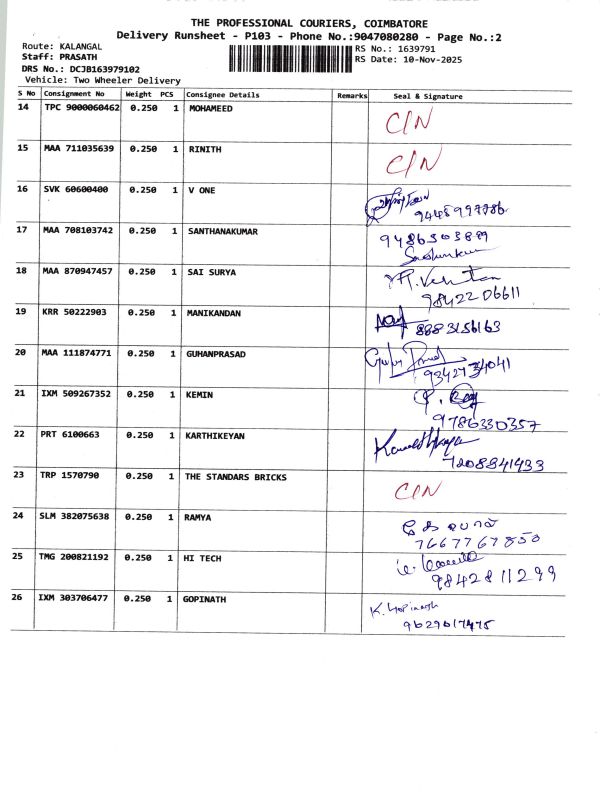 THE PROFESSIONAL COURIERS, COIMBATORE
Delivery Runsheet - P103 - Phone No.:9047080280 - Page No.:2
Route: KALANGAL
RS No.: 1639791
Staff: PRASATH
RS Date: 10-Nov-2025
DRS No.: DCJB163979102
Vehicle: Two Wheeler Delivery
S No Consignment No Weight PCS Consignee Details Remarks Seal & Signature
14 TPC 9000060462 0.250 1 MOHAMEED C/N
15 MAA 711035639 0.250 1 RINITH C/N
16 SVK 60600400 0.250 1 V ONE
17 MAA 708103742 0.250 1 SANTHANAKUMAR 9486303889
18 MAA 870947457 0.250 1 SAI SURYA
9842206611
19 KRR 50222903 0.250 1 MANIKANDAN 8883156163
20 MAA 111874771 0.250 1 GUHANPRASAD
9342734041
21 IXM 509267352 0.250 1 KEMIN
9786330357
22 PRT 6100663 0.250 1 KARTHIKEYAN
7208841933
23 TRP 1570790 0.250 1 THE STANDARS BRICKS C/N
24 SLM 382075638 0.250 1 RAMYA
7667767850
25 TMG 200821192 0.250 1 HI TECH
9842811299
26 IXM 303706477 0.250 1 GOPINATH K. Gopinath
9629017475